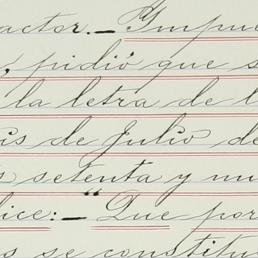 actor.- Impue
, pidió que s
la letra de l
is de Julio de
s setenta y nu
lice:-"Que por
os se constitu